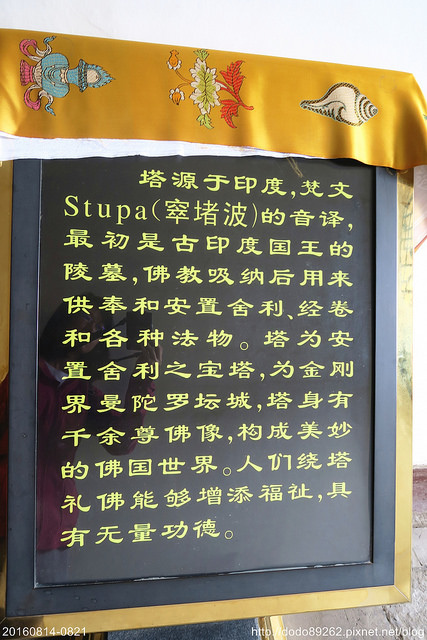 塔源于印度,梵文
Stupa(窣堵波)的音译,
最初是古印度国王的
陵墓,佛教吸纳后用来
供奉和安置舍利、经卷
和各种法物。塔为安
置舍利之宝塔,为金刚
界曼陀罗坛城,塔身有
千余尊佛像,构成美妙
的佛国世界。人们绕塔
礼佛能够增添福祉,具
有无量功德。
20160814-0821
http://dodo89262.pixnet.net/blog